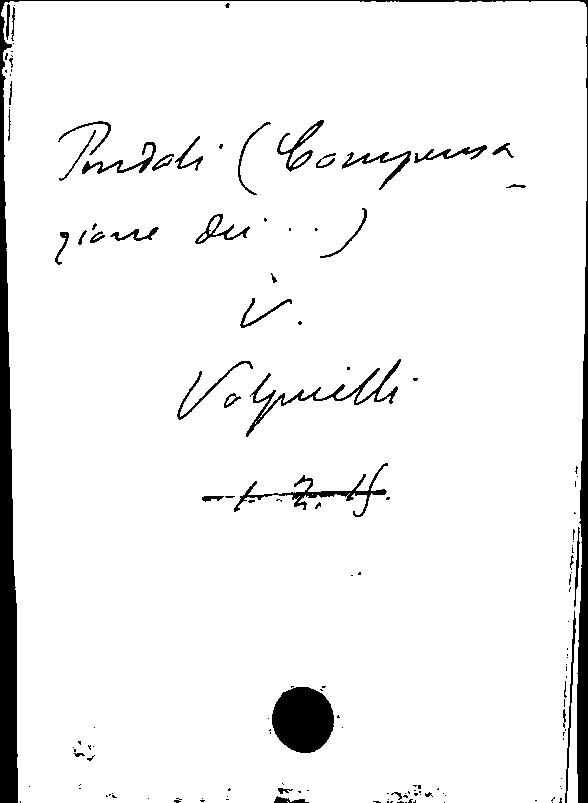 Pendoli (Compensa-
zione dei...)
V.
Volpicelli